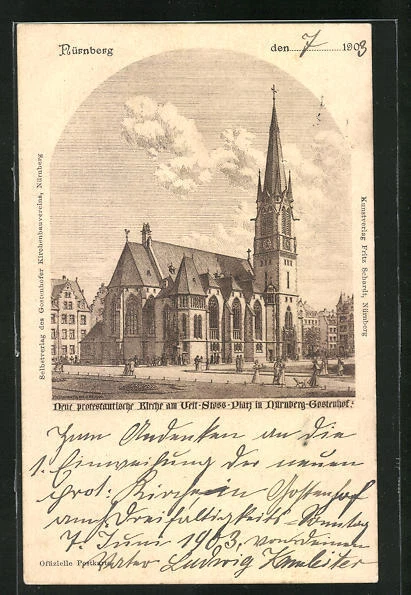 Nürnberg
den 7 1903
Selbstverlag des Gostenhofer Kirchenbauvereins, Nürnberg
Kunstverlag Fritz Schardt, Nürnberg
Neue protestantische Kirche am Veit-Stoss-Platz in Nürnberg-Gostenhof.
Zum Andenken an die
1. Einweihung der neuen
Prot. Kirche in Gostenhof
am Dreifaltigkeits-Sonntag
7. Juni 1903, von deinem
Offizielle Postkarte
Vater Ludwig